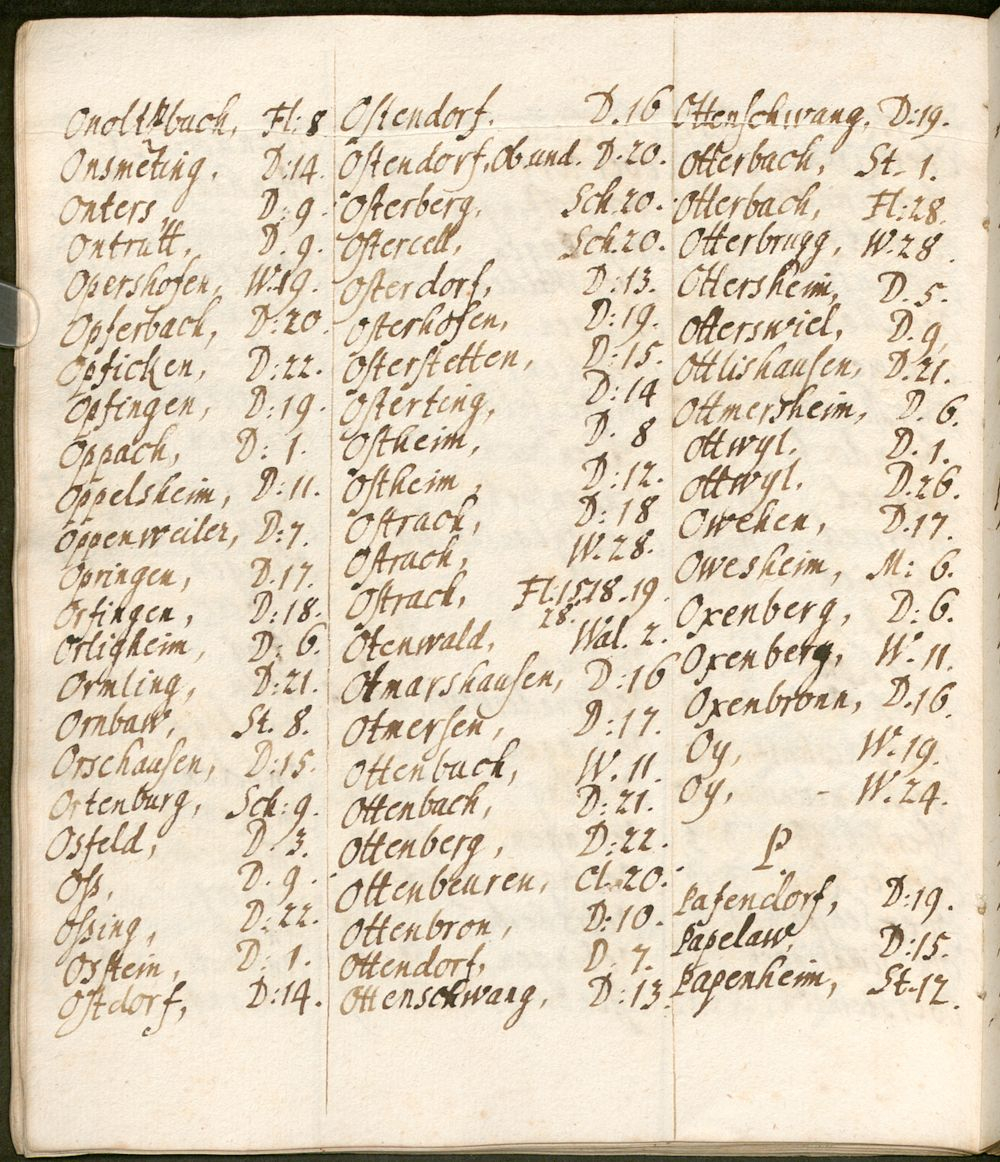 Onoltzbach, Fl: 8
Onsmeting, D: 14.
Onters D. 9.
Ontrütt, D. 9.
Opershofen, W. 19.
Opferbach, D: 20.
Opficken, D: 22.
Opfingen, D: 19.
Oppach, D: 1.
Oppelsheim, D: 11.
Oppenweiler, D: 7.
Opringen, D. 17.
Orfingen, D: 18.
Orligheim, D: 6.
Ormling, D: 21.
Ornbaw, St. 8.
Orschausen, D: 15.
Ortenburg, Sch: 9.
Osfeld, D. 3.
Oß, D. 9.
Oßing, D: 22.
Osstein, D: 1.
Ostdorf, D: 14.
Ostendorf. D. 16
Ostendorf, Ob. und. D: 20.
Osterberg, Sch. 20.
Ostercell, Sch. 20.
Osterdorf, D: 13.
Osterhofen, D: 19.
Osterstetten, D: 15.
Osterting, D: 14
Ostheim, D. 8
Ostheim, D: 12.
Ostrach, D: 18
Ostrach, W. 28.
Ostrach, Fl: 15. 18. 19.
28.
Otenwald, Wal. 2.
Otmarshausen, D: 16
Otmersen, D: 17.
Ottenbach, W. 11.
Ottenbach, D: 21.
Ottenberg, D: 22.
Ottenbeuren, Cl. 20.
Ottenbron, D: 10.
Ottendorf, D. 7.
Ottenschwang, D: 13.
Ottenschwang, D: 19.
Otterbach, St. 1.
Otterbach, Fl: 28.
Otterbrugg, W. 28.
Ottersheim, D. 5.
Otterswiel, D. 9.
Ottlishausen, D. 21.
Ottmersheim, D. 6.
Ottwyl. D. 1.
Ottwyl. D. 26.
Owehen, D. 17.
Owesheim, M: 6.
Oxenberg, D: 6.
Oxenberg, W. 11.
Oxenbronn, D. 16.
Oy, W. 19.
Oy, - W. 24.
P
Pafendorf, D: 19.
Papelaw, D: 15.
Papenheim, St. 12.